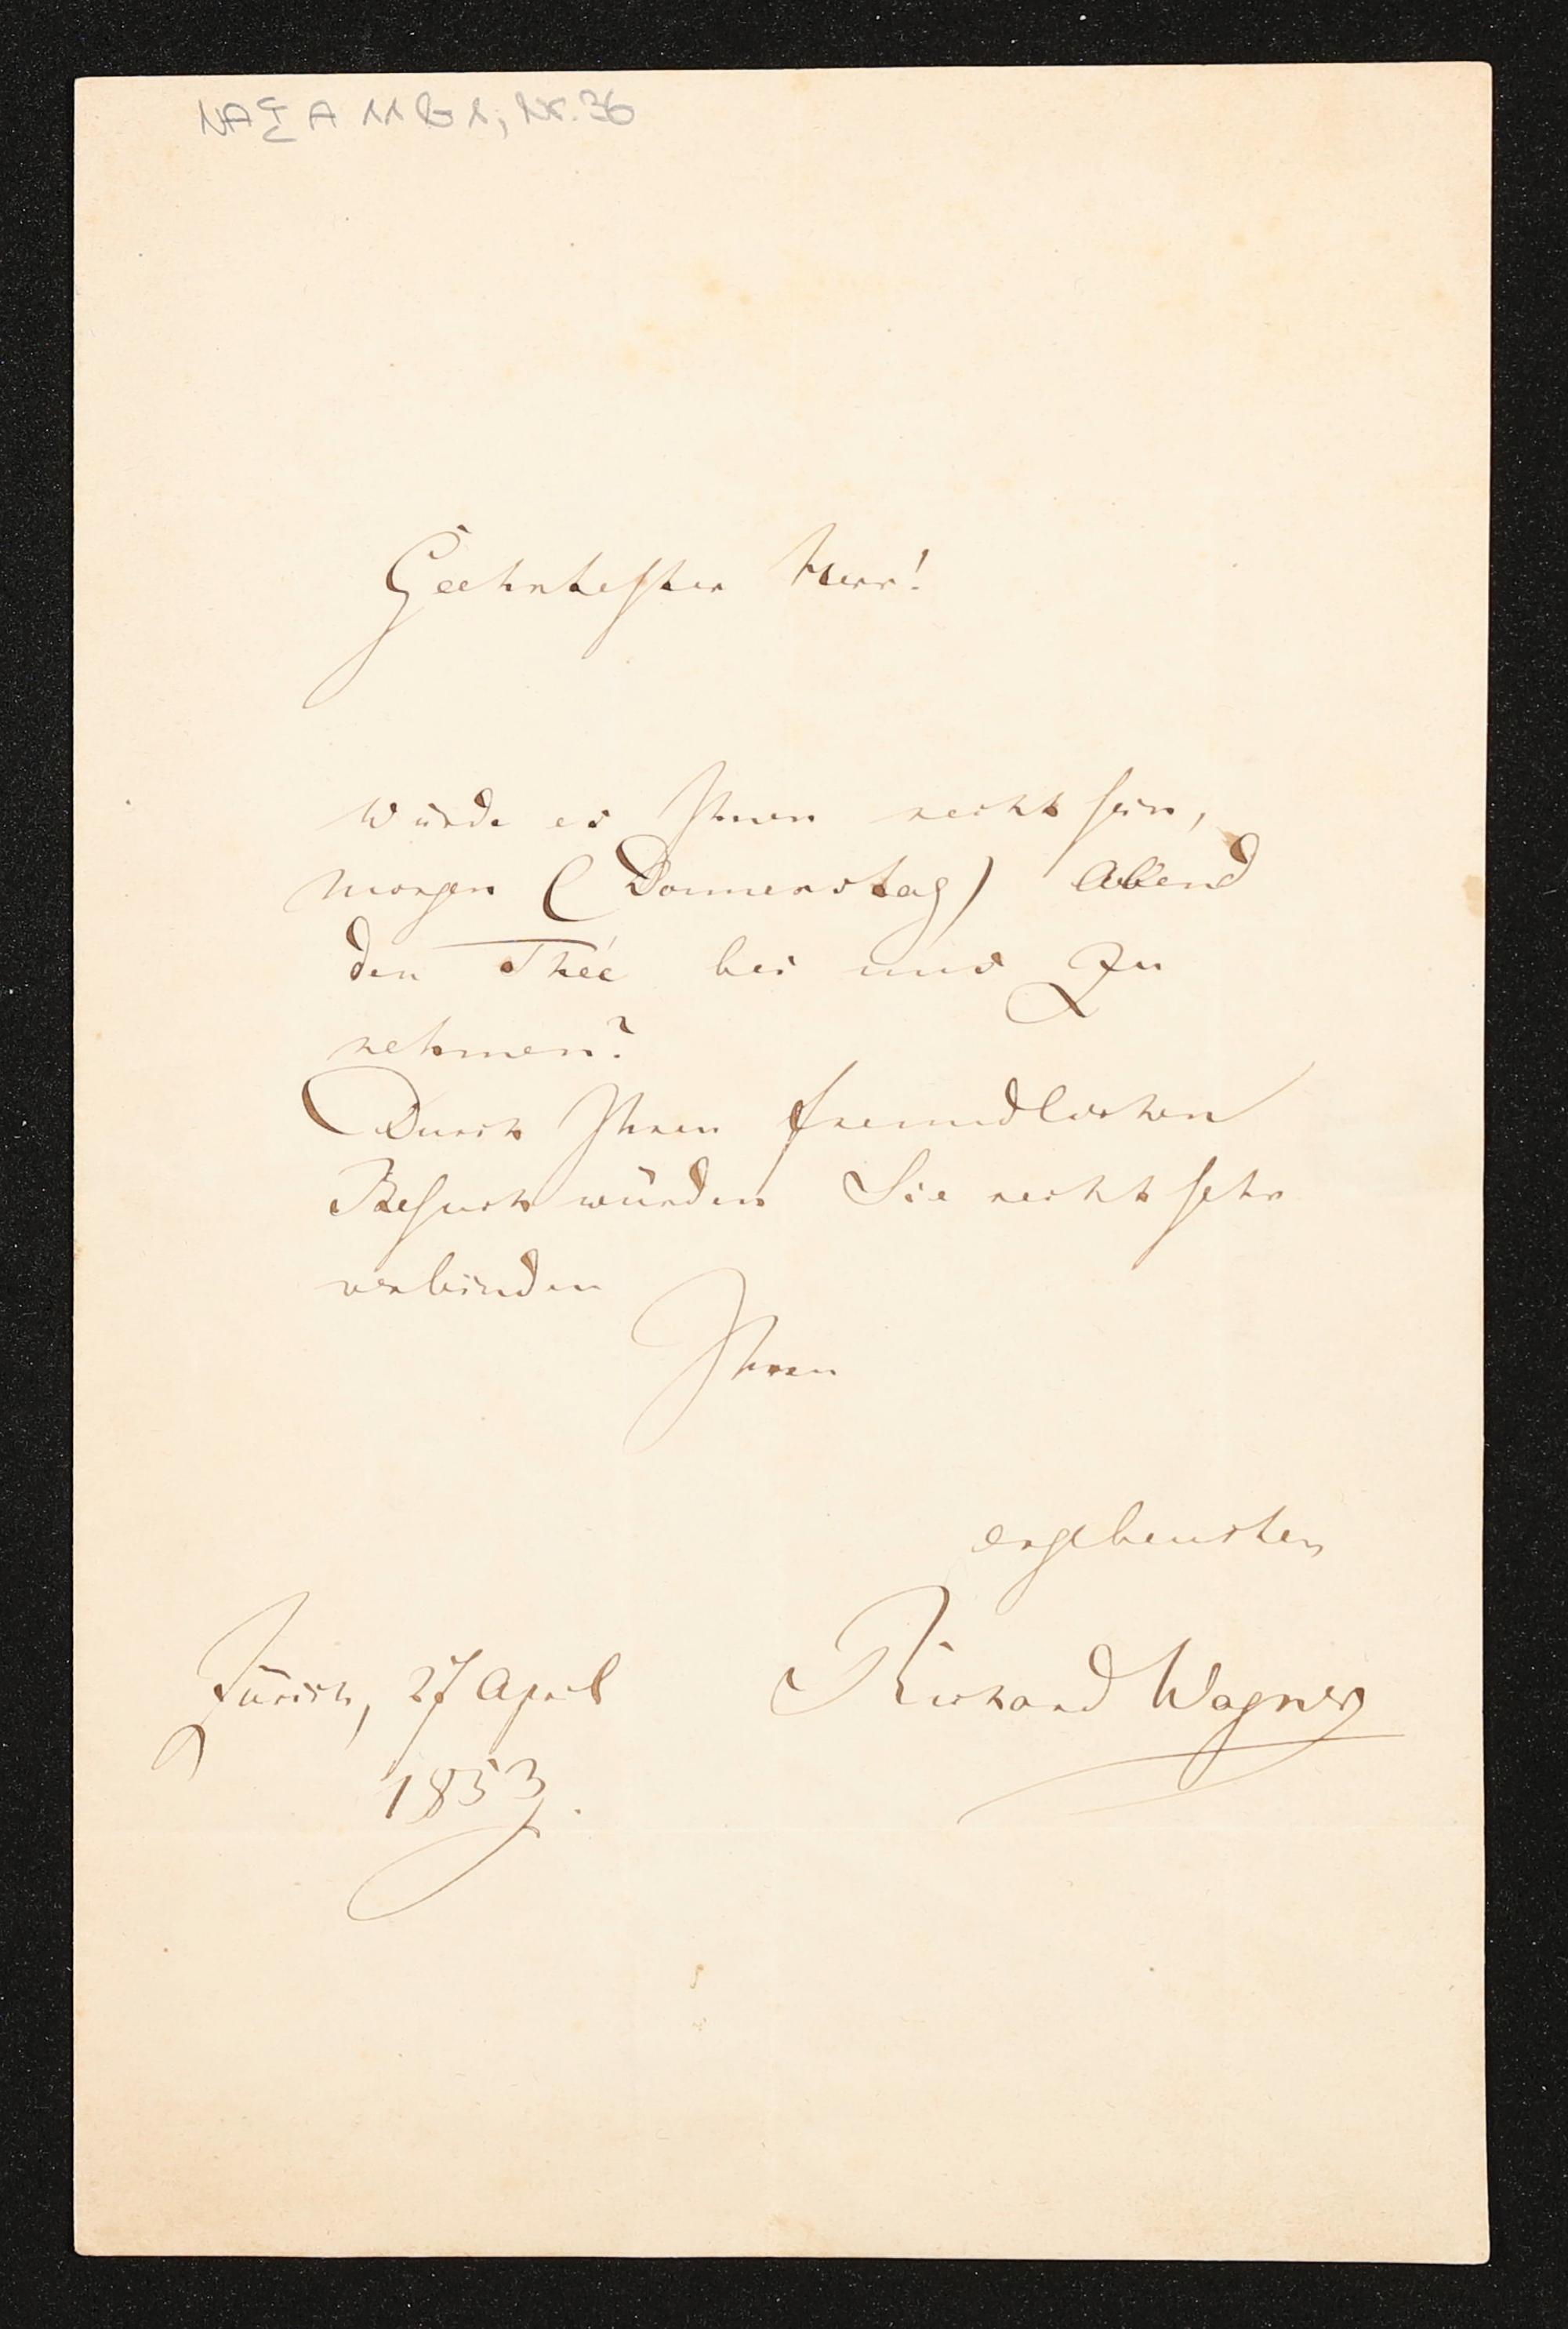 Nr. 36
Geehrtester Herr!
Würde es Ihnen recht sein,
morgen (Donnerstag) Abend
den Thée bei uns zu
nehmen?
Durch Ihren freundlichen
Besuch würden Sie recht sehr
verbinden
Ihren
ergebensten
Richard Wagner
Zürich, 27 April
1853.